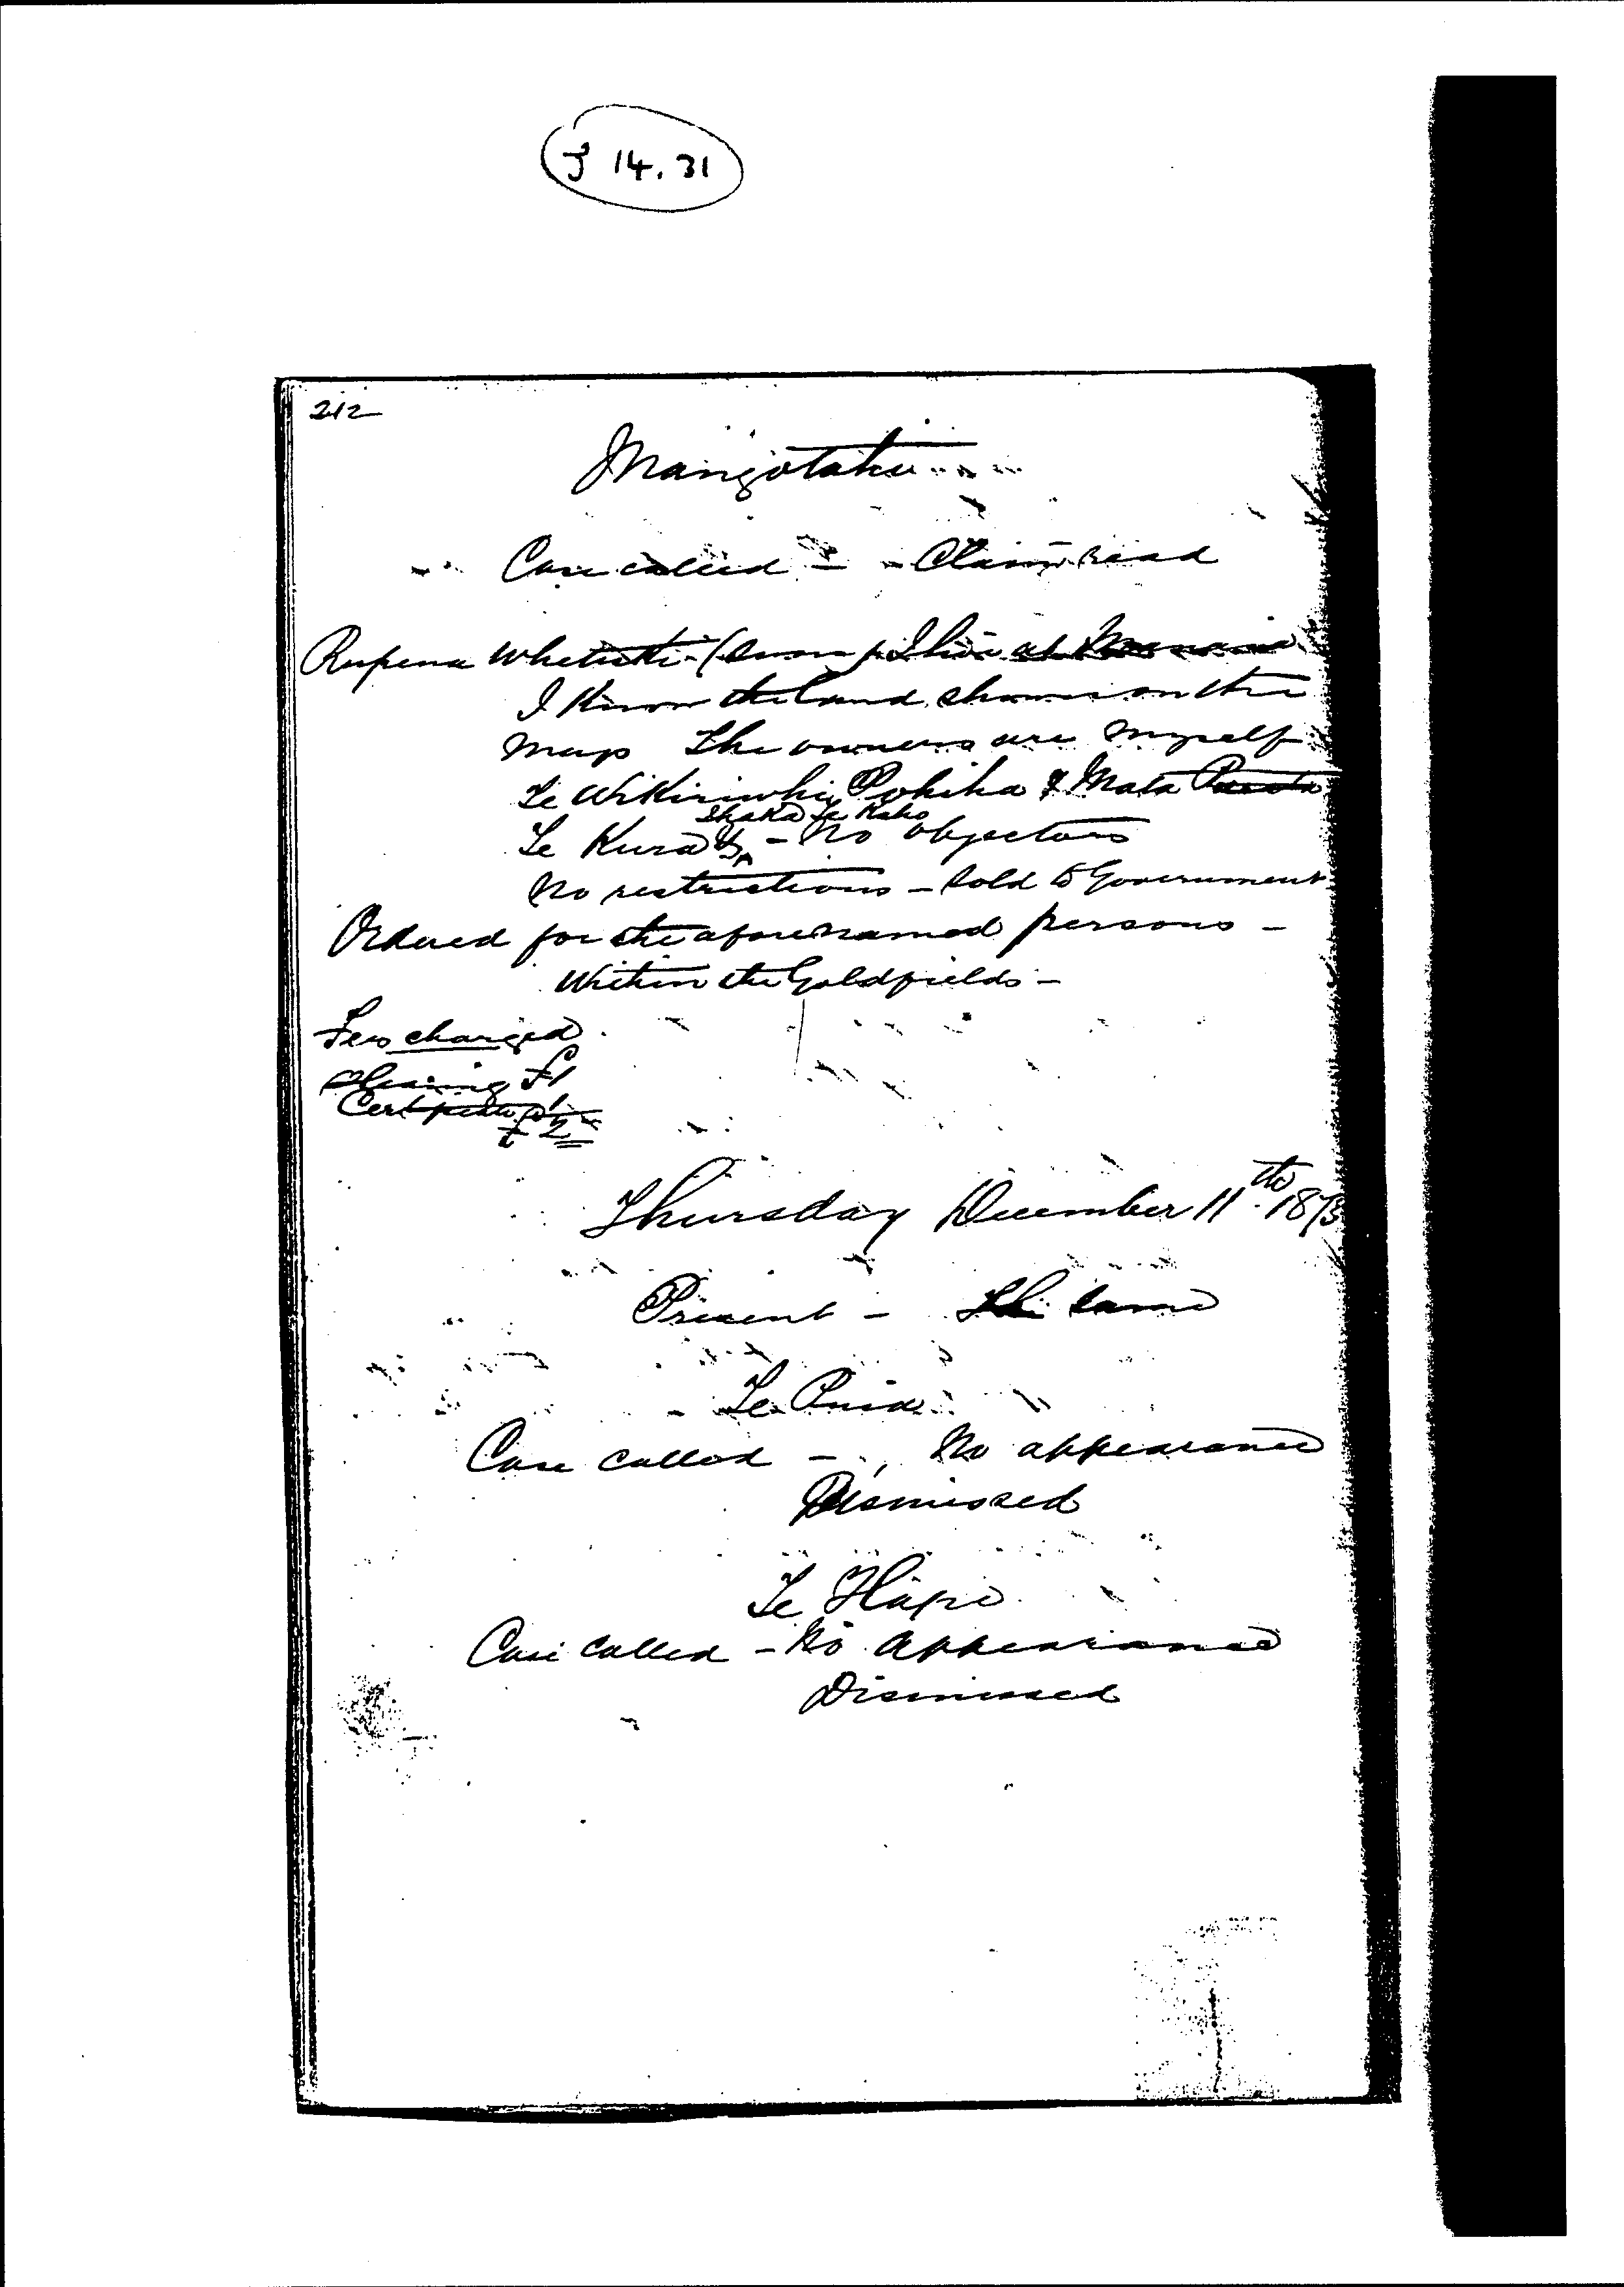 J 14.31
212
Mangotahu
Case called - - Claim read
Rupena Whetuki (Sworn) I live at Manaia
I know the land shown on the
map The owners are myself
Te Wikiriwhi Pokiha & Mata
Ihaka Te Kaho
Te Kura & - No objectors
No restrictions - Sold to Government
Ordered for the aforenamed persons -
Within the Goldfields -
Fees charged
Hearing £1
Certificate £1
£2
Thursday December 11th 1873
Present - The Same
Te Puia
Case called - No appearance
Dismissed
Te Hape
Case called - No appearance
Dismissed